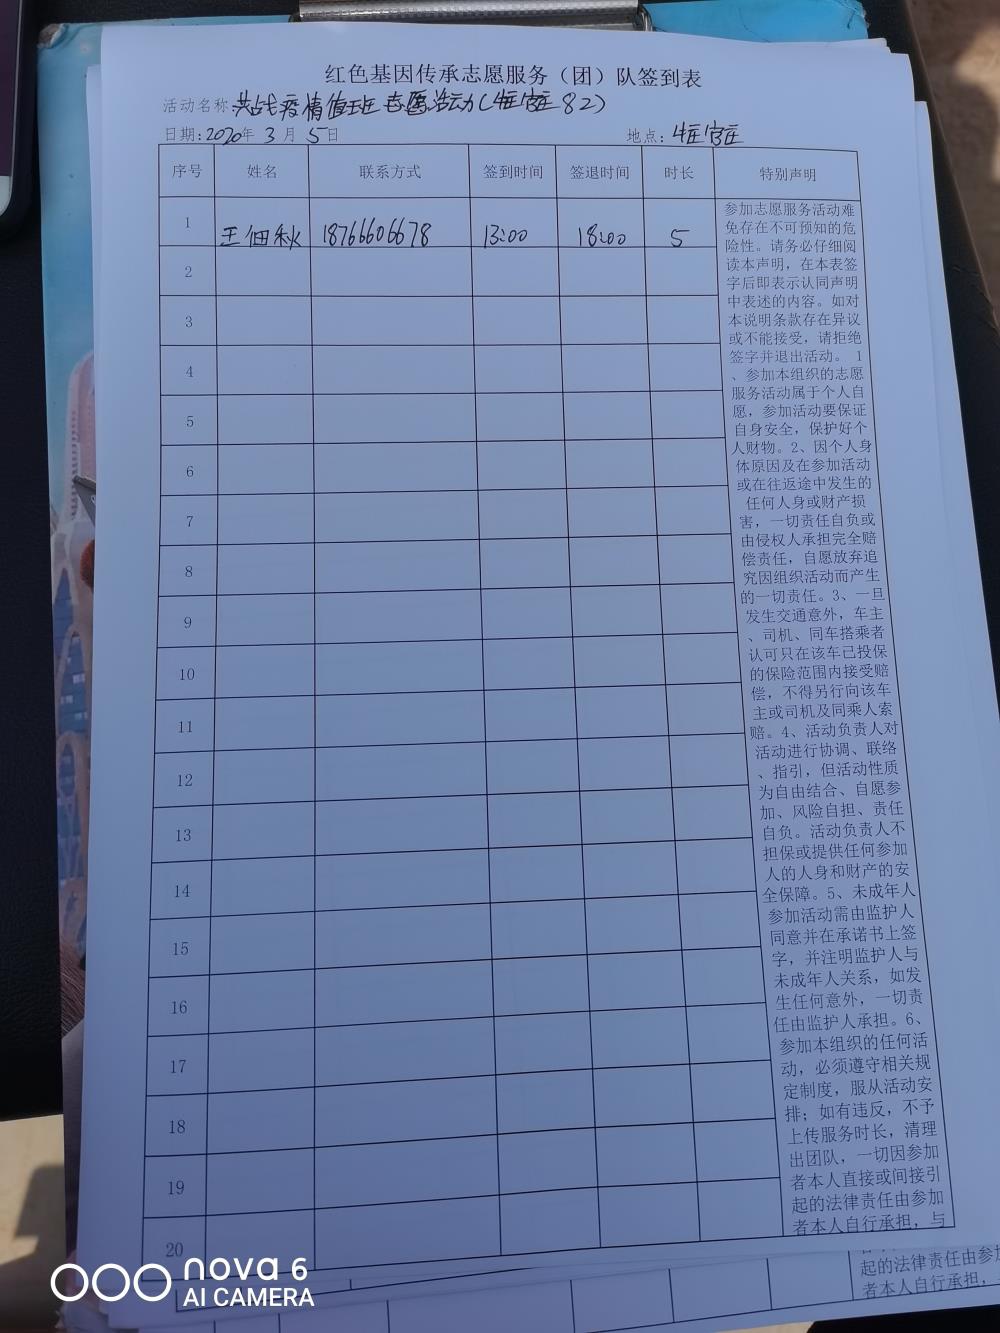 红色基因传承志愿服务（团）队签到表
活动名称 共战疫情值班志愿活动(

82)
日期:2020年 3 月 5日 地点:
序号 姓名 联系方式 签到时间 签退时间 时长 特别声明
1 王佃秋 18766606678 13:00 18:00 5
2
3
4
5
6
7
8
9
10
11
12
13
14
15
16
17
18
19
20
参加志愿服务活动难
免存在不可预知的危
险性。请务必仔细阅
读本声明，在本表签
字后即表示认同声明
中表述的内容。如对
本说明条款存在异议
或不能接受，请拒绝
签字并退出活动。 1
、参加本组织的志愿
服务活动属于个人自
愿，参加活动要保证
自身安全，保护好个
人财物。2、因个人身
体原因及在参加活动
或在往返途中发生的
任何人身或财产损
害，一切责任自负或
由侵权人承担完全赔
偿责任，自愿放弃追
究因组织活动而产生
的一切责任。3、一旦
发生交通意外，车主
、司机、同车搭乘者
认可只在该车已投保
的保险范围内接受赔
偿，不得另行向该车
主或司机及同乘人索
赔。4、活动负责人对
活动进行协调、联络
、指引，但活动性质
为自由结合、自愿参
加、风险自担、责任
自负。活动负责人不
担保或提供任何参加
人的人身和财产的安
全保障。5、未成年人
参加活动需由监护人
同意并在承诺书上签
字，并注明监护人与
未成年人关系，如发
生任何意外，一切责
任由监护人承担。6、
参加本组织的任何活
动，必须遵守相关规
定制度，服从活动安
排；如有违反，不予
上传服务时长，清理
出团队，一切因参加
者本人直接或间接引
起的法律责任由参加
者本人自行承担，与
起的法律责任由参加
者本人自行承担，
nova 6
AI CAMERA